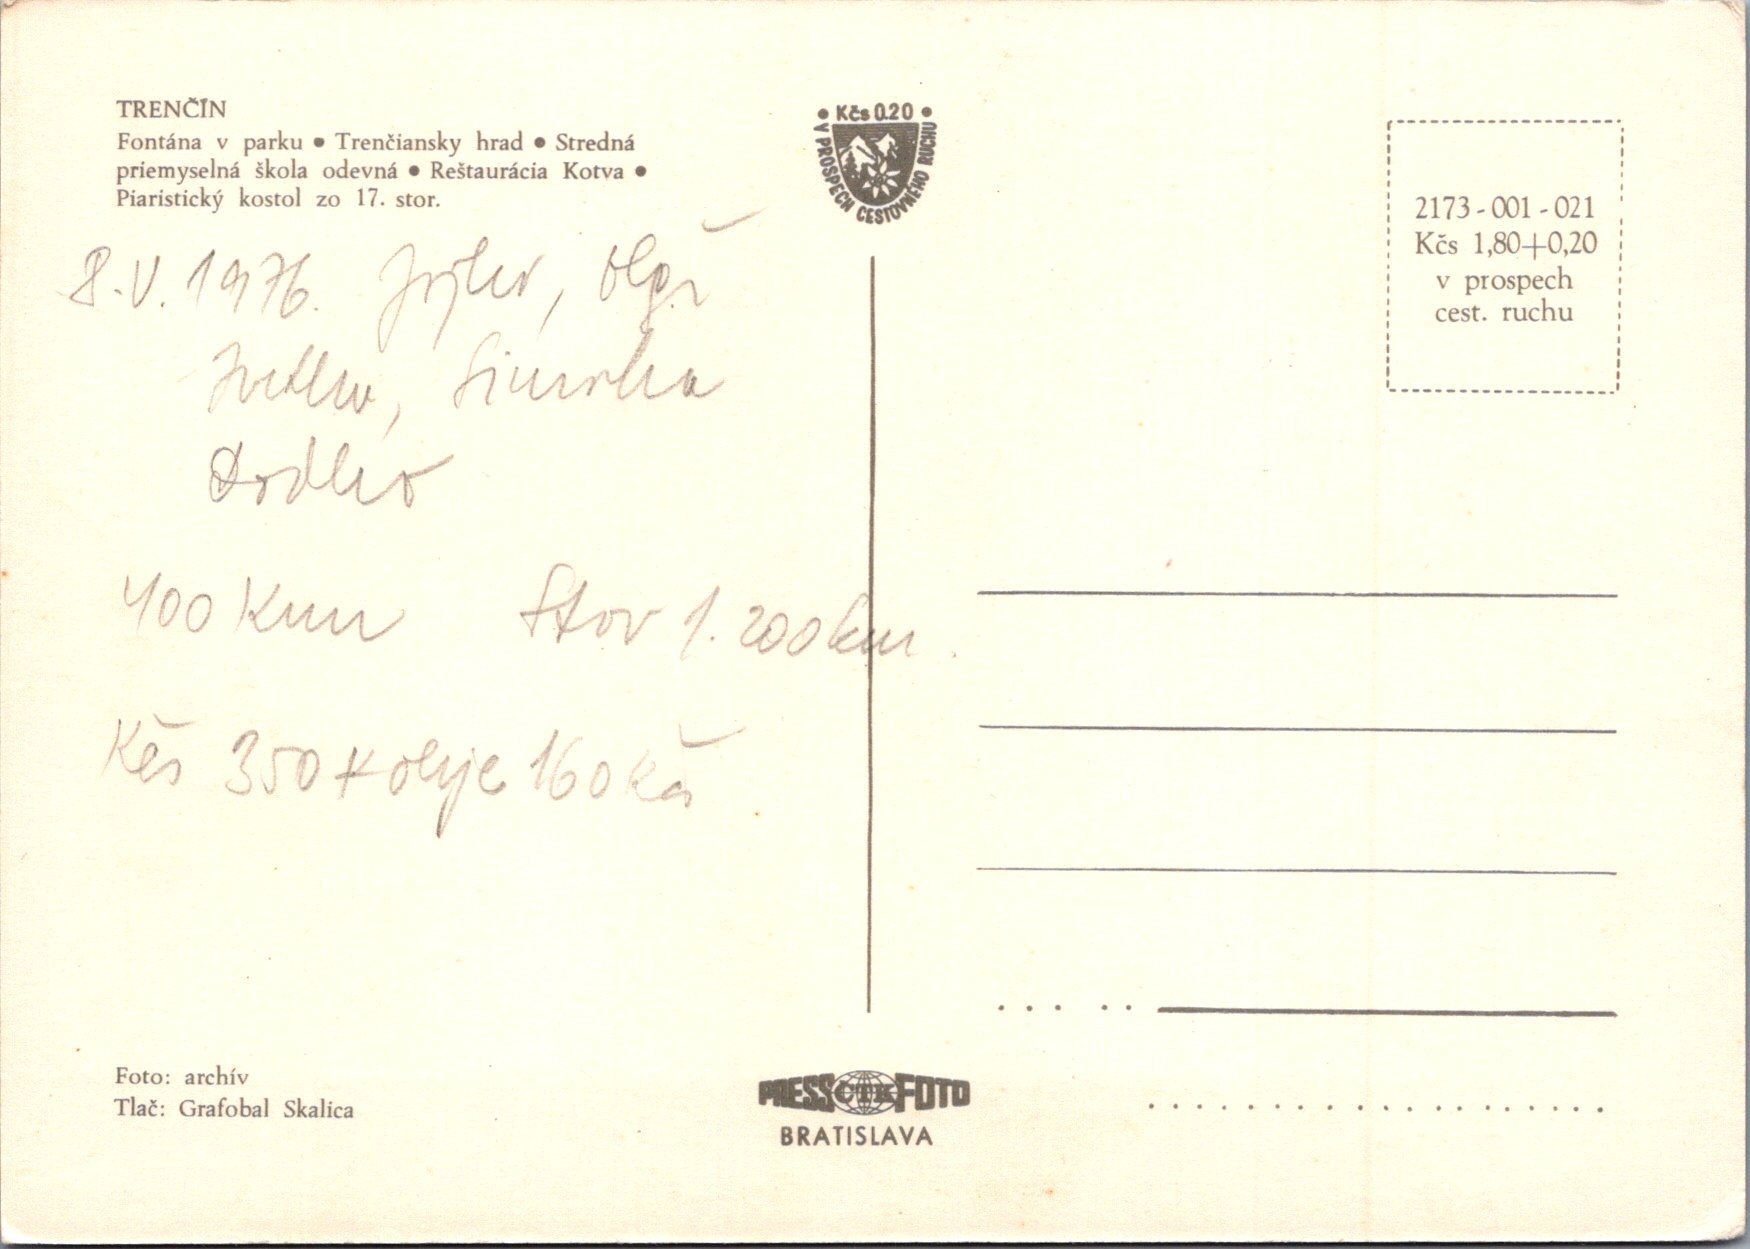 TRENČÍN
Fontána v parku • Trenčiansky hrad • Stredná
priemyselná škola odevná • Reštaurácia Kotva •
Piaristický kostol zo 17. stor.
• Kčs 0.20 •
V PROSPECH CESTOVNÉHO RUCHU
2173-001-021
Kčs 1,80+0,20
v prospech
cest. ruchu
8.V. 1976.
400 Km Stov 1.200 km
Kčs 350 + oleje 160 Kčs
Foto: archív
Tlač: Grafobal Skalica
PRESS ČTK FOTO
BRATISLAVA